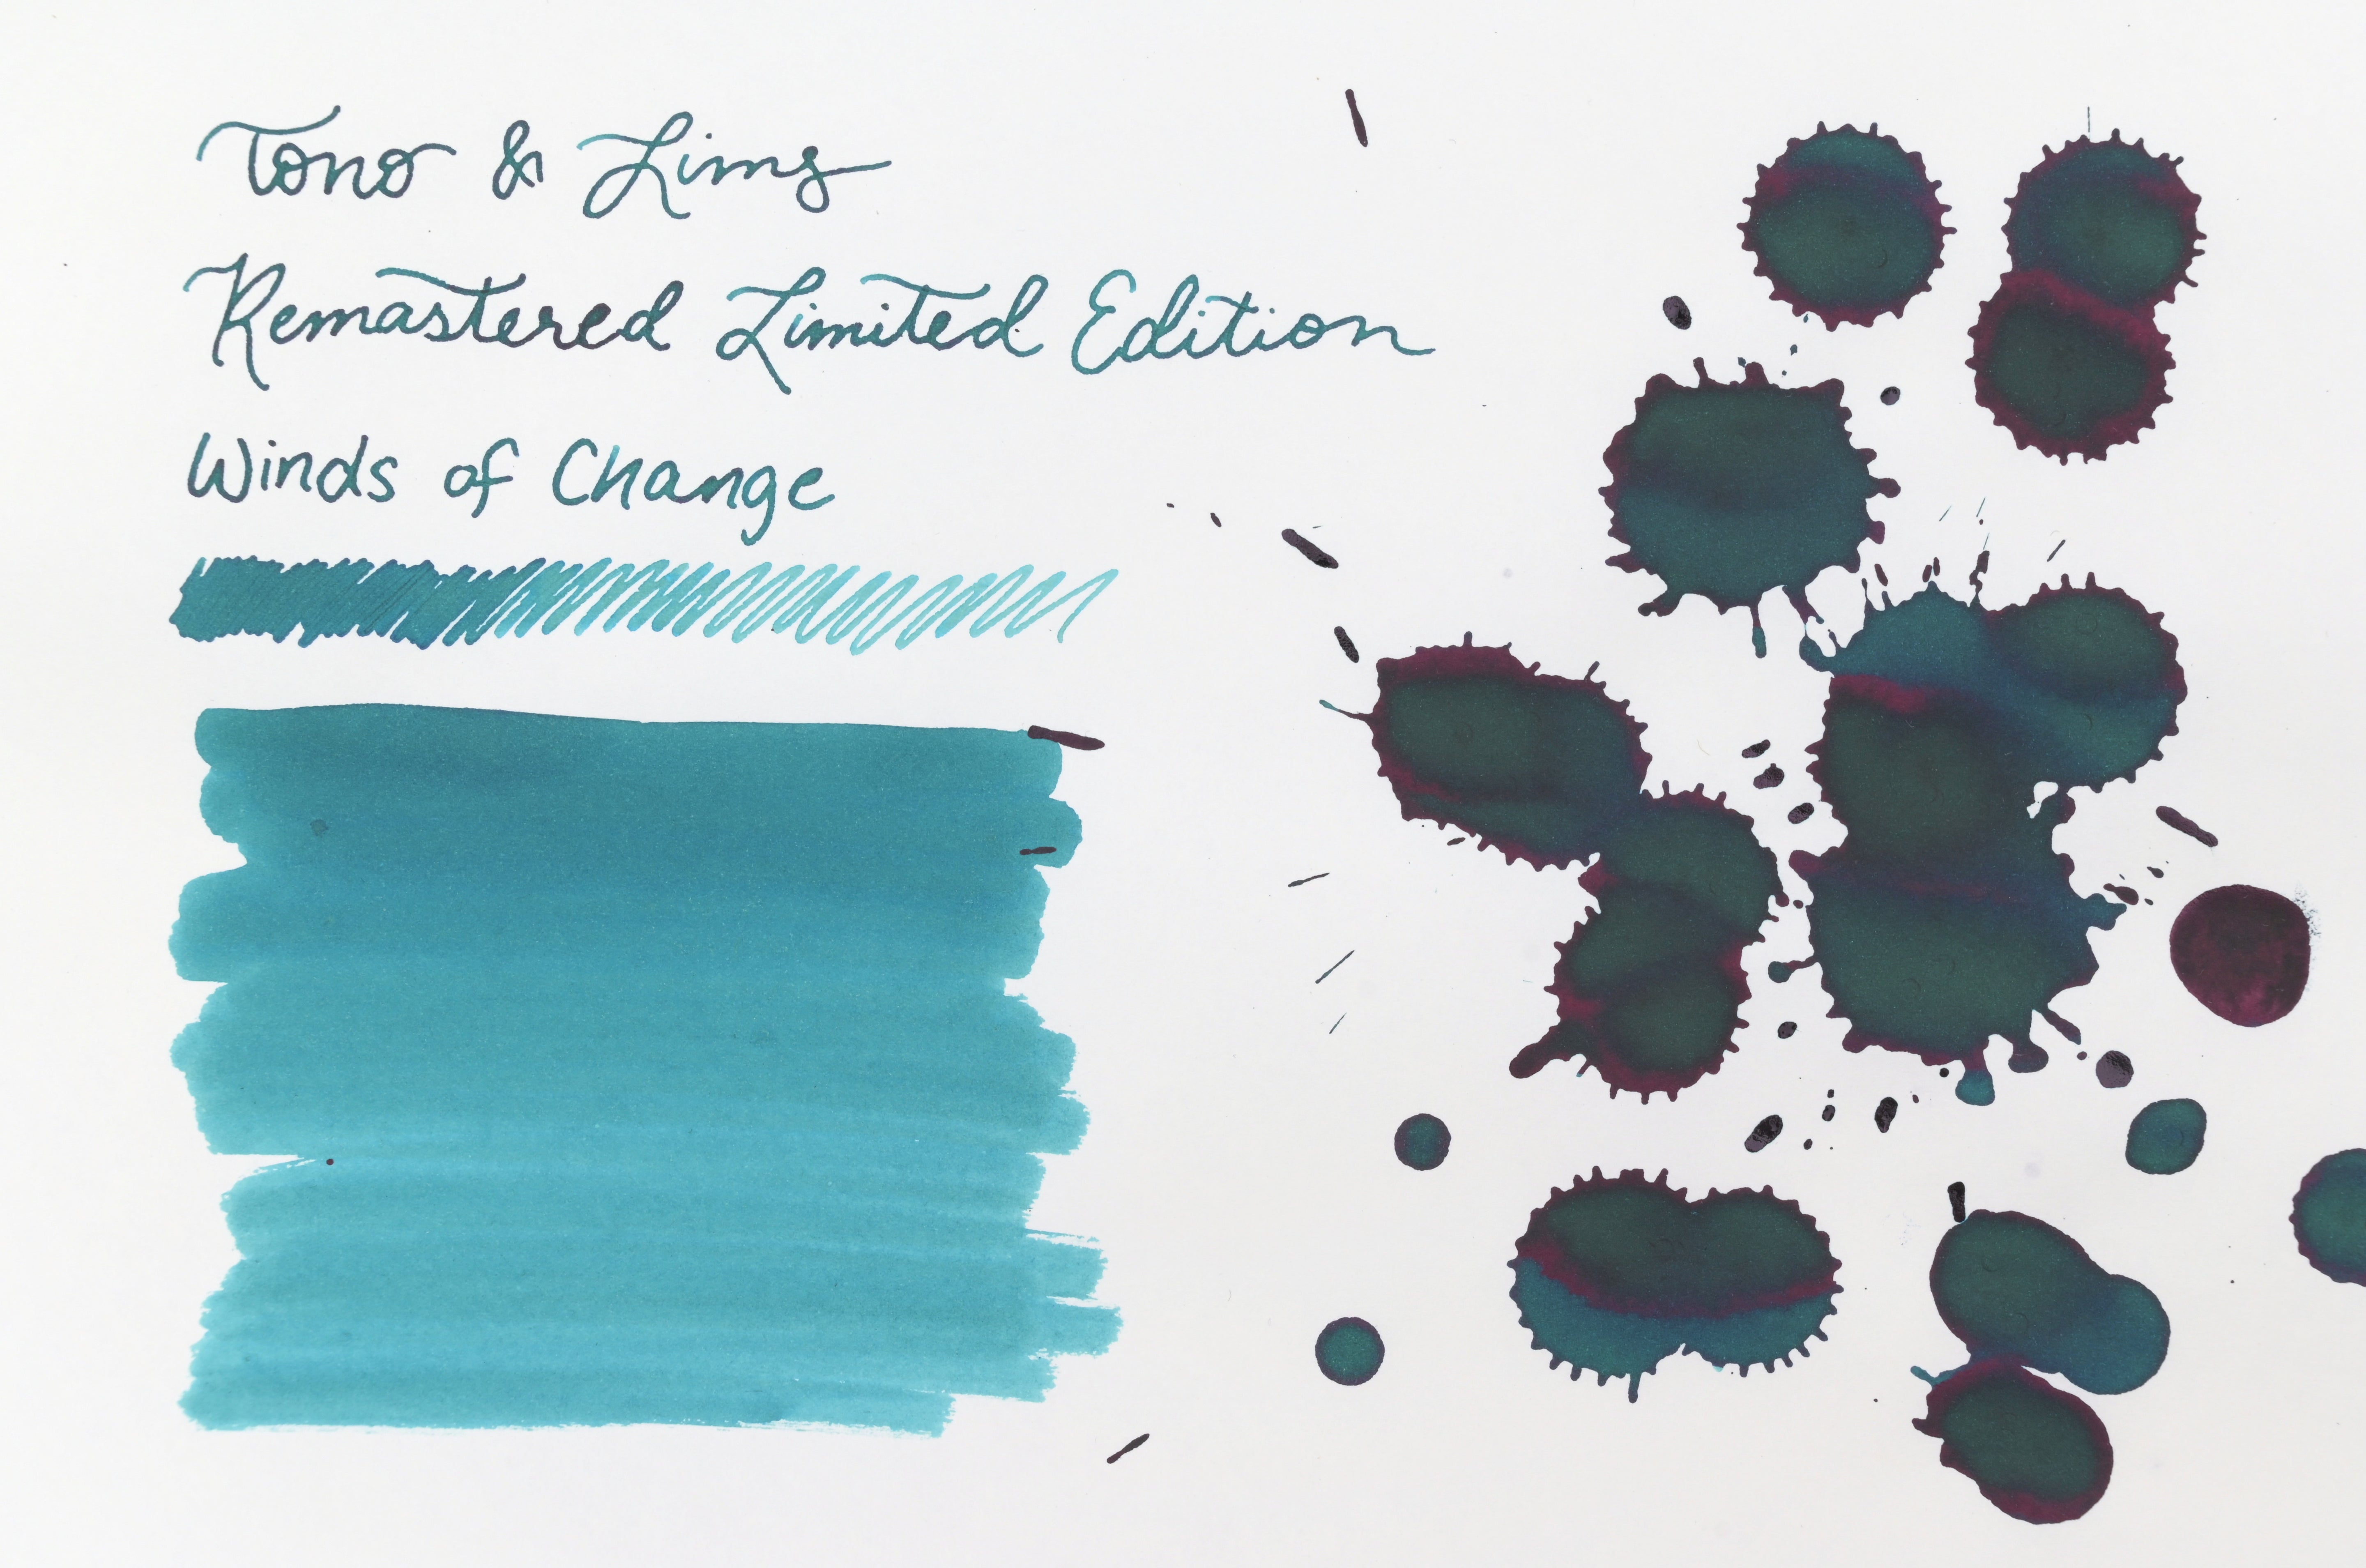 Tono & Lims
Remastered Limited Edition
Winds of Change